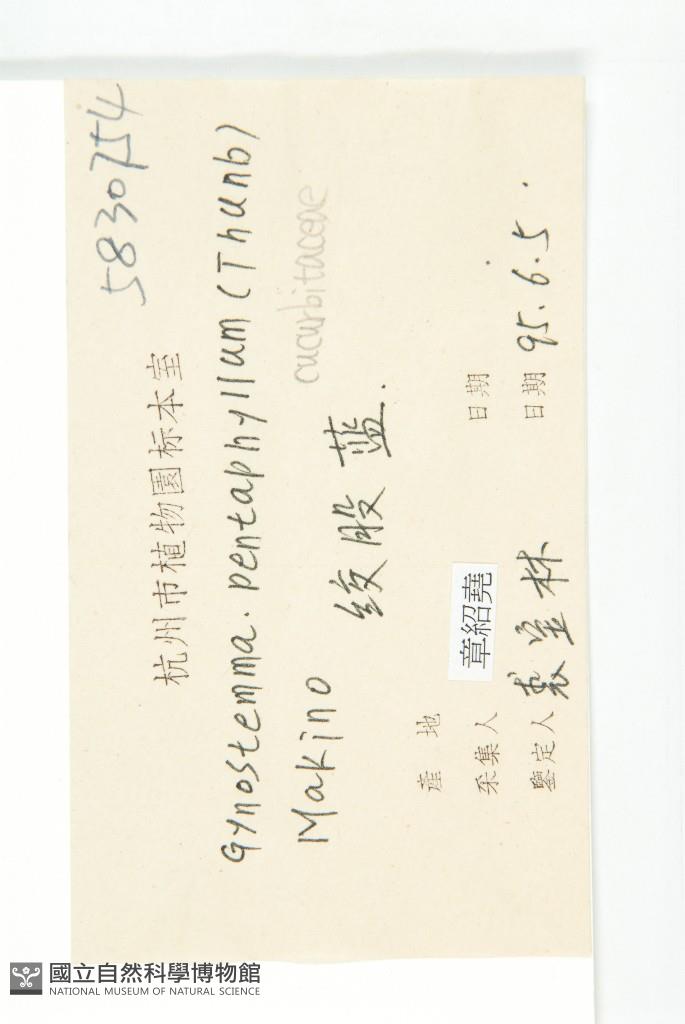 5830754
杭州市植物園标本室
Gynostemma. pentaphyllum (Thunb)
cucurbitaceae
Makino
绞股蓝.
產地
采集人 章紹堯 日期
鑒定人 裘宝林 日期 95.6.5.
國立自然科學博物館
NATIONAL MUSEUM OF NATURAL SCIENCE